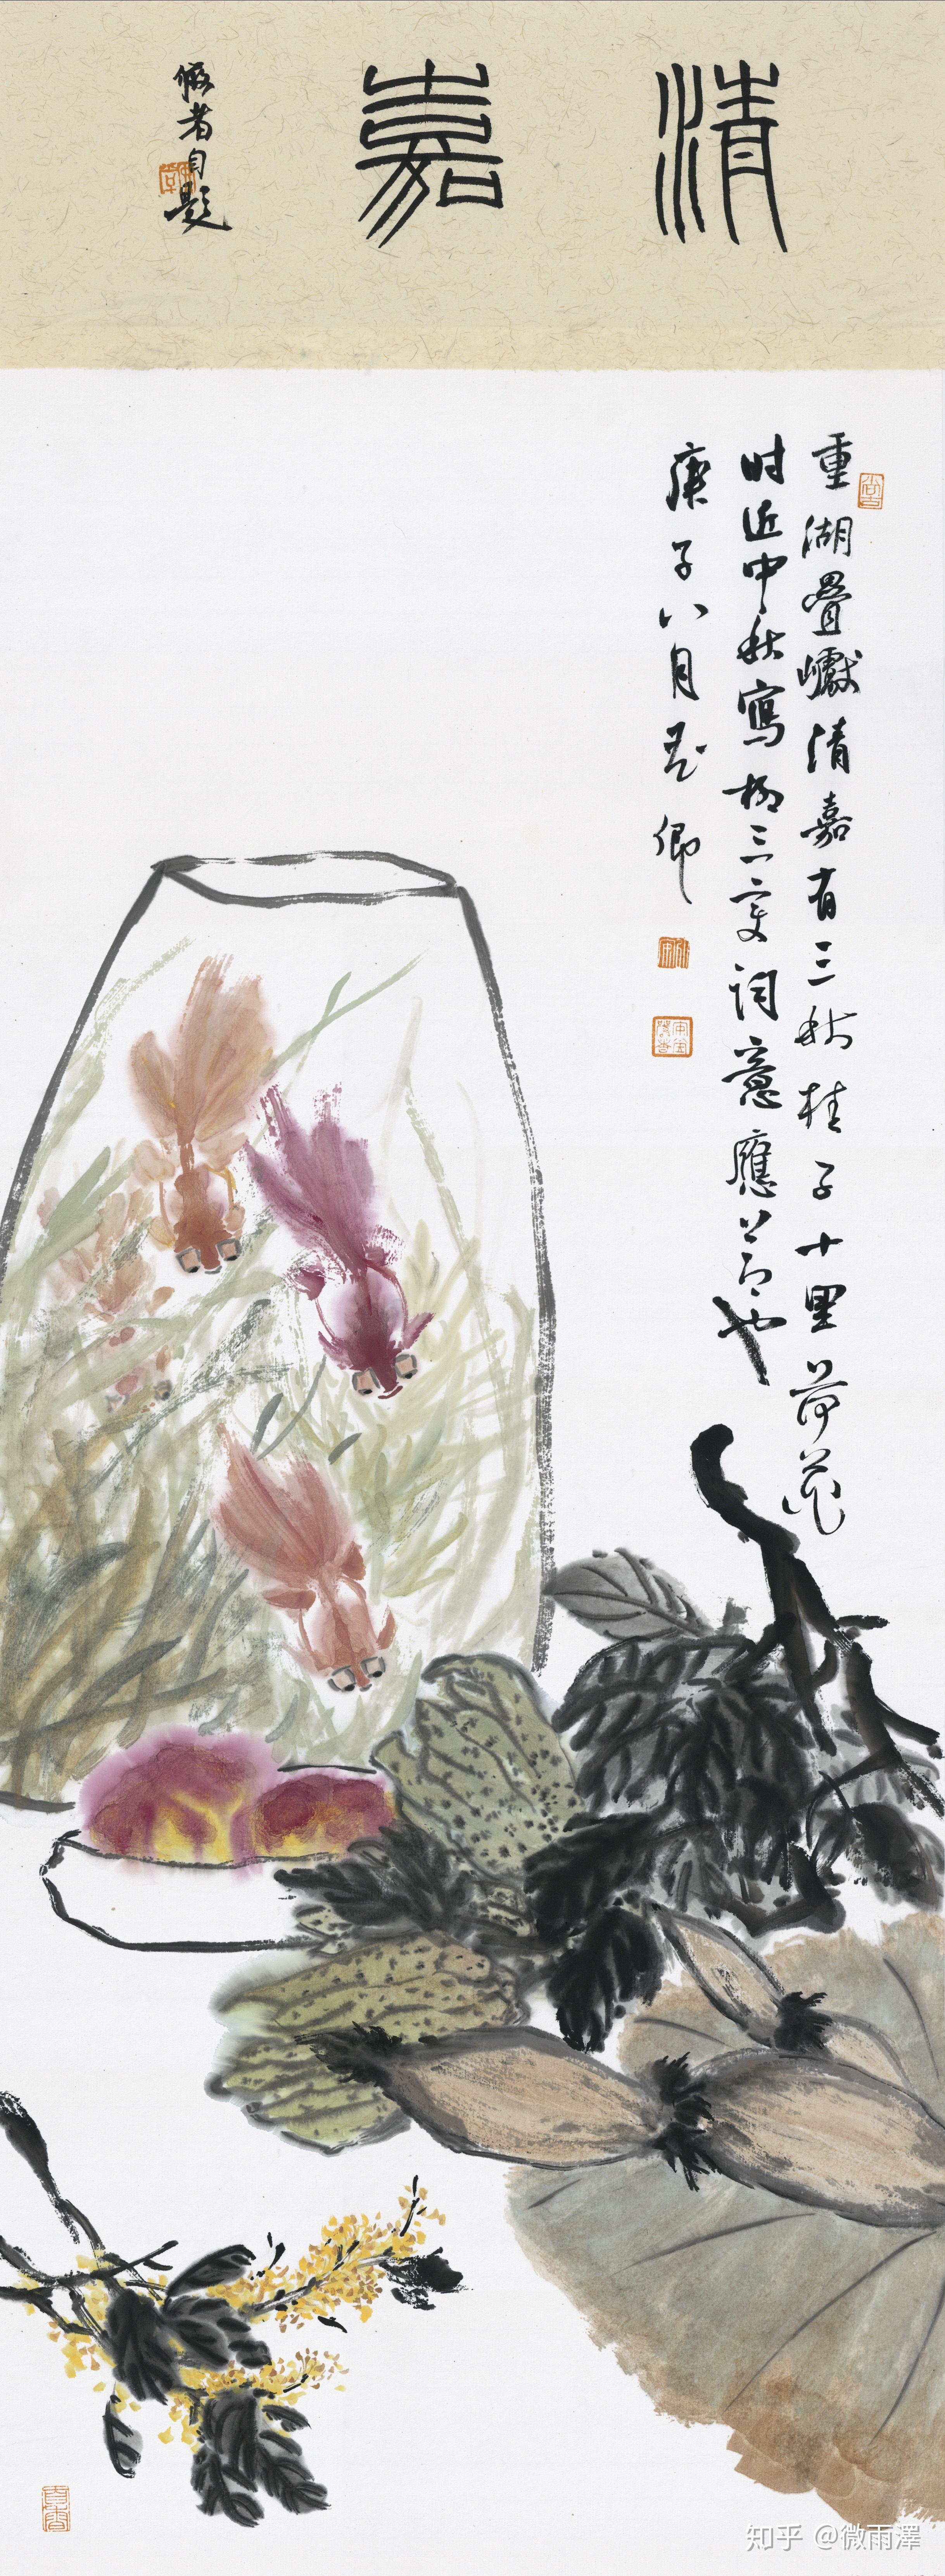 清嘉
者自题
重湖疊巘清嘉有三秋桂子十里荷花
时近中秋寫柳三变词意應节也
庚子八月卿
知乎 @微雨澤